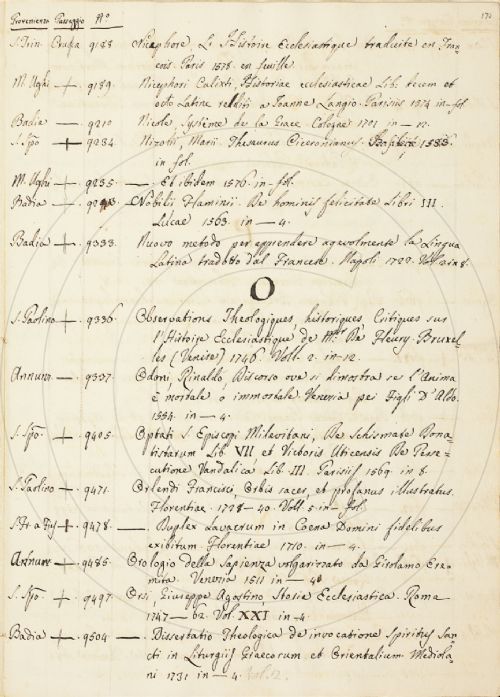 Provenienza Passaggio N.º
170
S. Trin. Crusca 9188 Nicephore, L. Histoire Ecclesiastique traduite en Fran-
cois. Paris 1578. en feuille
M. Ughi + 9189. Nicephori Calixti, Historiae ecclesiasticae Lib. decem et
octo Latine redditi a Joanne Langio. Parisiis 1574 in-fol
Badia — 9210 Nicole, Système de la Grace. Cologne 1701 in — 12.
S. Spo + 9234. Nizolii, Marii. Thesaurus Ciceronianus. 1583.
in fol.
M. Ughi + 9235. —. Et ibidem 1576. in-fol.
Badia — Nobilii Flaminii. De hominis felicitate Libri III.
Lucae 1563. in — 4.
Badia + 9333. Nuovo metodo per apprendere agevolmente la Lingua
Latina tradotto dal Francese. Napoli 1722. Vol. 2 in 8.
O
S. Paolino + 9336. Observations Theologiques, historiques, Critiques sur
l'Histoire Ecclesiastique de M.r De Fleury. Bruxel-
les (Venise) 1746. Voll. 2. in-12.
Annun. — 9337. Odoni, Rinaldo, Discorso ove si dimostra se l'Anima
è mortale o immortale. Venezia pei Figli d'Aldo.
1554. in — 4.
S. Spo. + 9405. Optati S. Episcopi Milevitani, De Schismate Dona-
tistarum Lib. VII et Victoris Uticensis De Perse-
cutione Vandalica Lib. III. Parisiis 1569. in 8.
S. Paolino + 9471. Orlendi Francisci, Orbis sacer, et profanus illustratus.
Florentiae. 1728-40. Voll. 5. in — fol.
+ 9478 — —. Duplex Lavacrum in Coena Domini fidelibus
exibitum Florentiae 1710. in — 4.
Annun + 9485. Orologio della Sapienza volgarizzato da Girolamo
Venezia 1511 in — 4º
S. Spo. + 9497. Orsi, Giuseppe Agostino, Storia Ecclesiastica. Roma
1747 — 62. Vol. XXI in-4.
Badia + 9504 — —. Dissertatio Theologica de invocatione Spiritus San-
cti in Liturgiis Graecorum et Orientalium. Mediola-
ni 1731 in — 4. Vol. 2.